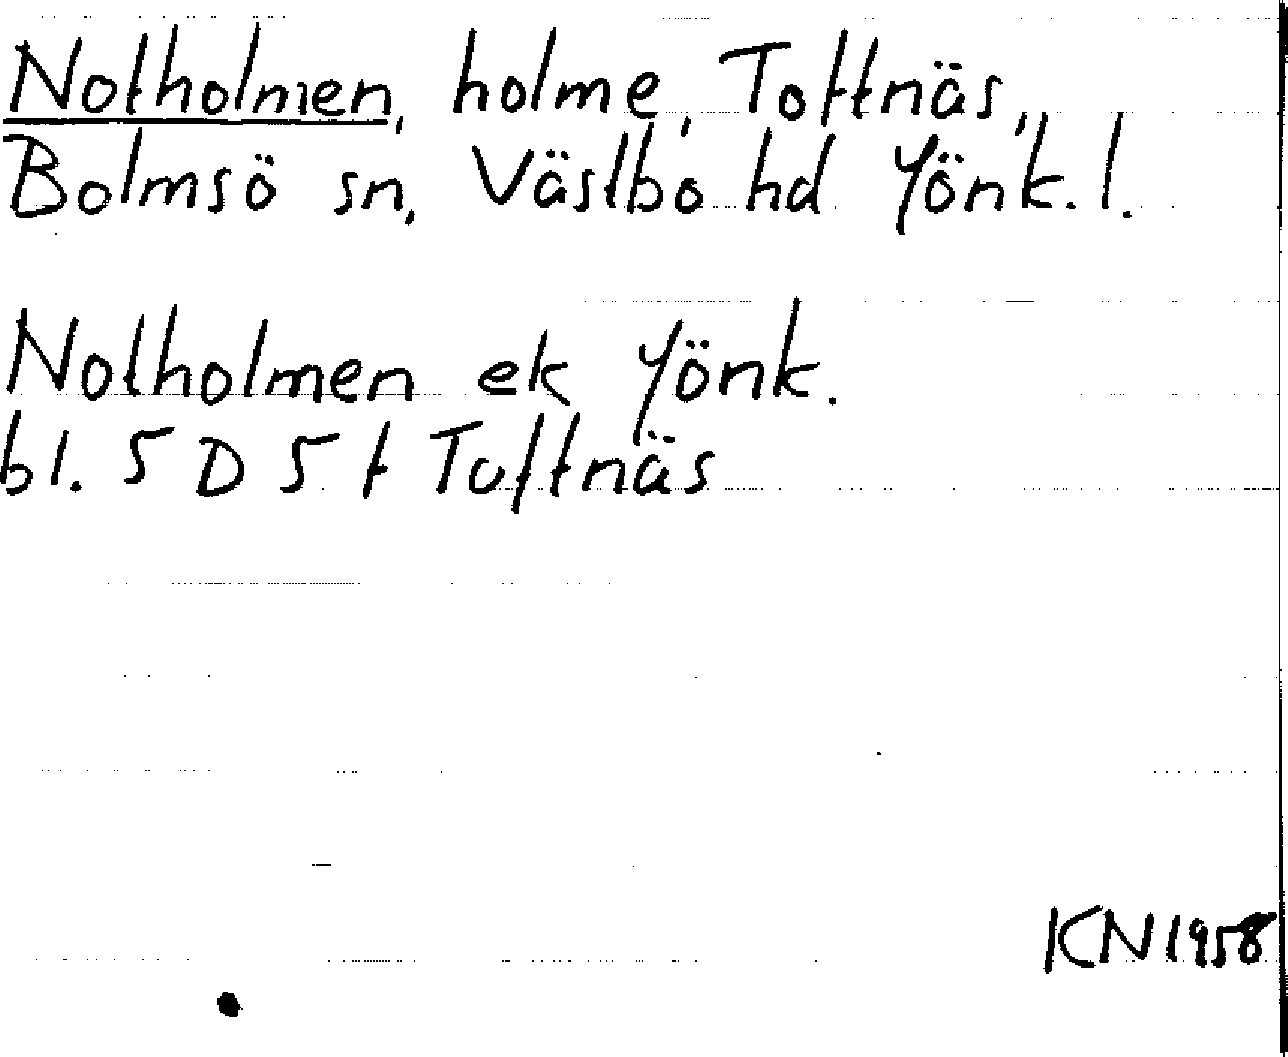 Notholmen, holme, Toftnäs,
Bolmsö sn, Västbo hd Jönk. l.
Notholmen ek Jönk.
bl. 5 D 5 f Toftnäs
KN 1958